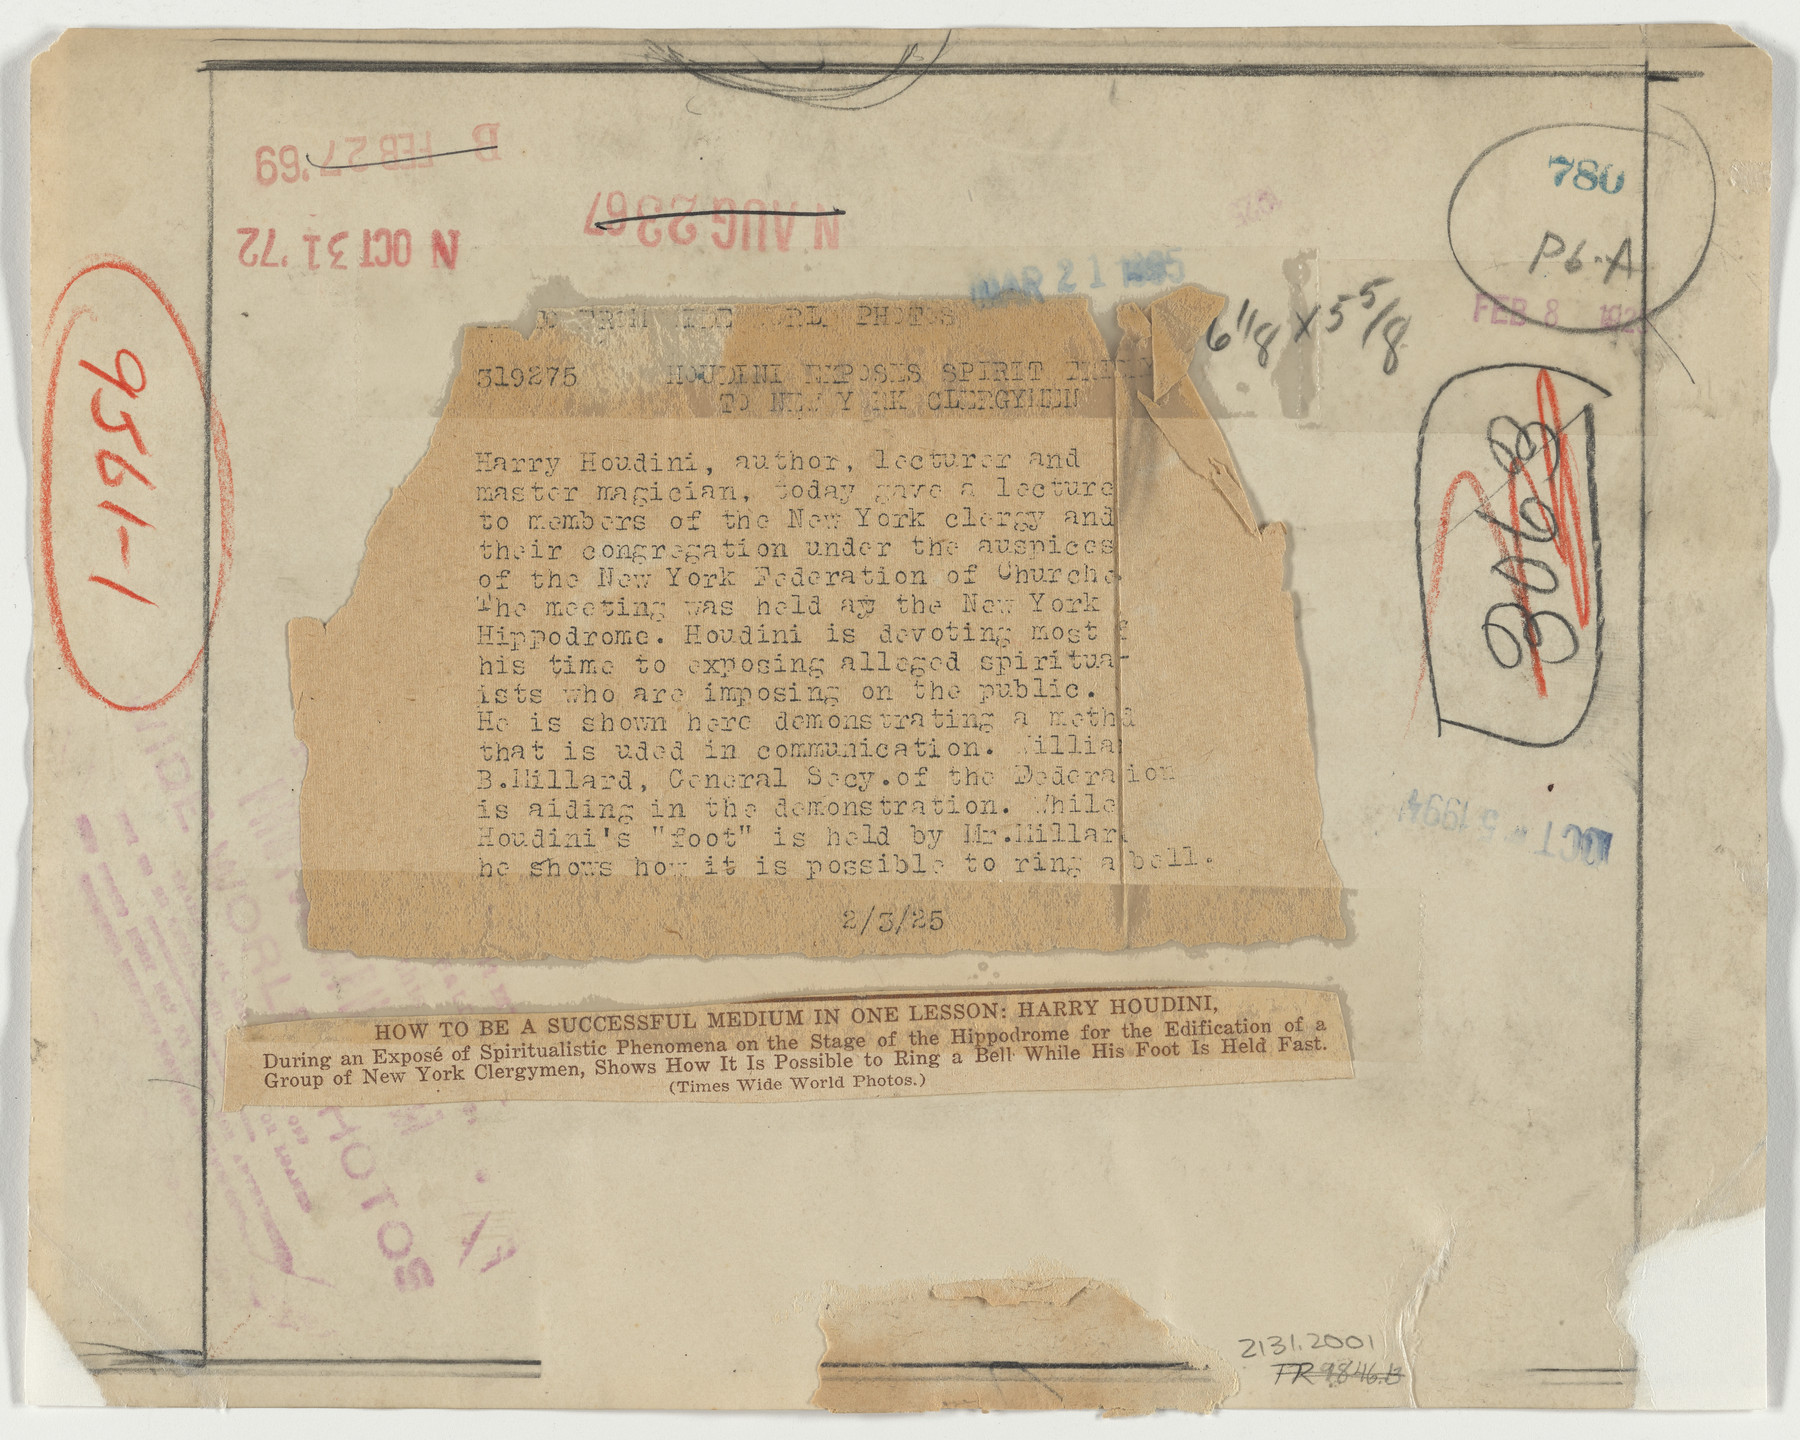 B FEB 27 '69
N OCT 31 '72
N AUG 23 67
780
P6-A
FEB 8
MAR 21
6 1/8 x 5 5/8
9561-1
3068
PHOTOS
319275 HOUDINI EXPOSES SPIRIT
TO NEW YORK CLERGYMEN
Harry Houdini, author, lecturer and
master magician, today gave a lecture
to members of the New York clergy and
their congregation under the auspices
of the New York Federation of Churche
The meeting was held at the New York
Hippodrome. Houdini is devoting most f
his time to exposing alleged spiritua-
ists who are imposing on the public.
He is shown here demonstrating a methd
that is uded in communication. Willia
B.Millard, General Secy.of the Federation
is aiding in the demonstration. While
Houdini's "foot" is held by Mr.Millar
he shows how it is possible to ring a bell.
2/3/25
OCT - 5 1994
HOW TO BE A SUCCESSFUL MEDIUM IN ONE LESSON: HARRY HOUDINI,
During an Exposé of Spiritualistic Phenomena on the Stage of the Hippodrome for the Edification of a
Group of New York Clergymen, Shows How It Is Possible to Ring a Bell While His Foot Is Held Fast.
(Times Wide World Photos.)
WIDE WORLD PHOTOS
2131.2001
FR9846.B